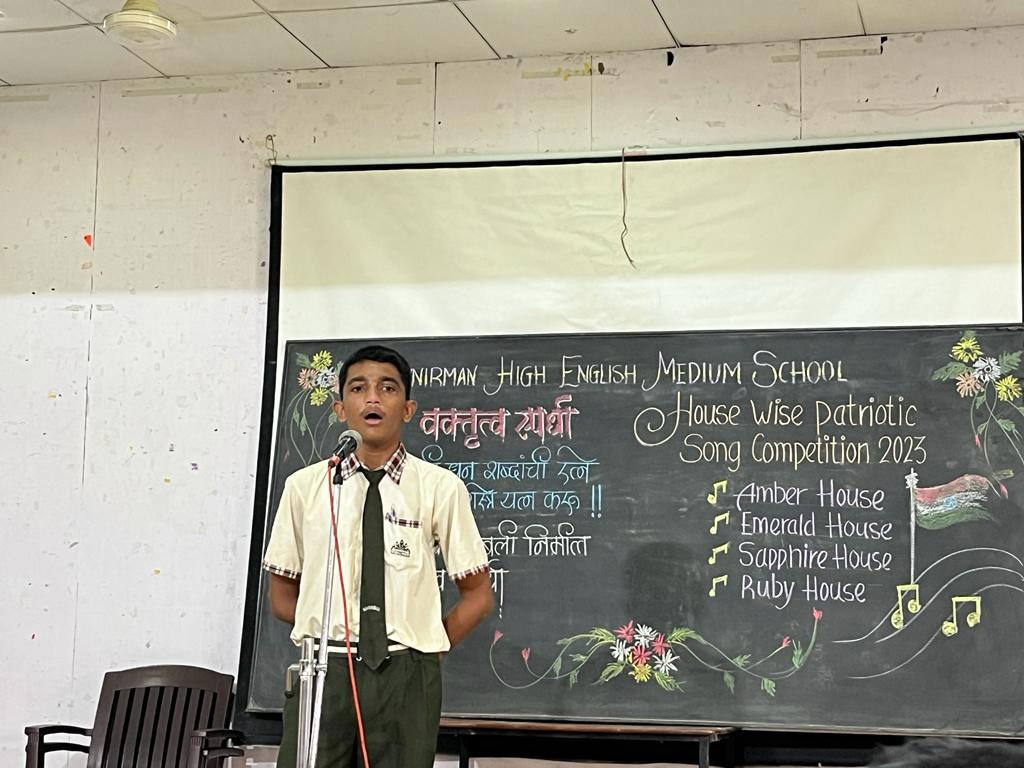 NIRMAN HIGH ENGLISH MEDIUM SCHOOL
वक्तृत्व स्पर्धा
शब्दांची रत्ने
यत्न करू !!
निर्मीत
House Wise Patriotic
Song Competition 2023
Amber House
Emerald House
Sapphire House
Ruby House